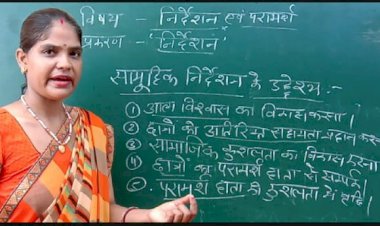 विषय - निर्देशन एवं परामर्श
प्रकरण - "निर्देशन"
सामूहिक निर्देशन के उद्देश्य :-
① आत्म विश्वास का विकास करना।
② छात्रों को अतिरिक्त सहायता प्रदान करना
③ सामाजिक कुशलता का विकास करना
④ छात्रों का परामर्श दाता से सम्पर्क।
⑤ परामर्श दाता की कुशलता में वृद्धि।